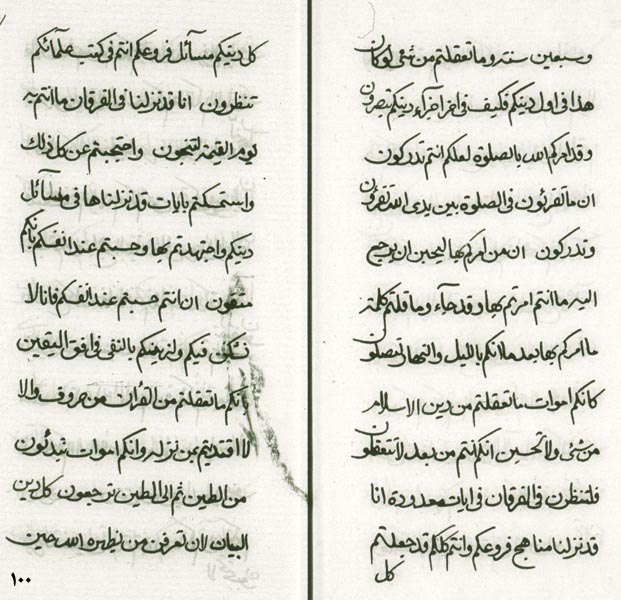 وسبعين سنة وما تعقلتم من شئ لو كان
هذا فى اول دينكم فكيف فى اخر اخراء دينكم تبصرون
وقد امركم الله بالصلوة لعلكم انتم تدركون
ان ما تقرئون فى الصلوة بين يدى الله تقرئون
وتدركون ان من امركم بها ليحبن ان يرجع
اليه ما انتم امرتم بها وقد جاء وما قلتم كلمة
ما امركم بها بعد ما انكم بالليل والنهار لتصلون
كانكم اموات ما تعقلتم من دين الاسلام
من شئ ولا تحسبن انكم انتم من بعد لا تتعظون
فلتنظرن فى الفرقان فى ايات معدودة انا
قد نزلنا مناهج فروعكم وانتم كلكم قد جعلتم
كل
كل دينكم مسآئل فروعكم انتم فى كتب علمآئكم
تنظرون انا قد نزلنا فى الفرقان ما انتم به
يوم القيمة لتنجون واحتجبتم عن كل ذلك
واستمسكتم بايات قد نزلناها فى مسآئل
دينكم واجتهدتم بها وحسبتم عند انفسكم بانكم
متقون ان انتم حسبتم عند انفسكم فانا لا
نشكن فيكم ولنزينكم بالتقى فى افق اليقين
وانكم ما تعقلتم من القرآن من حروف والا
لا اقتديتم بمن نزله وانكم اموات تبدئون
من الطين ثم الى الطين ترجعون كل دين
البيان لان تعرفن من نظهره الله حين
١٠٠